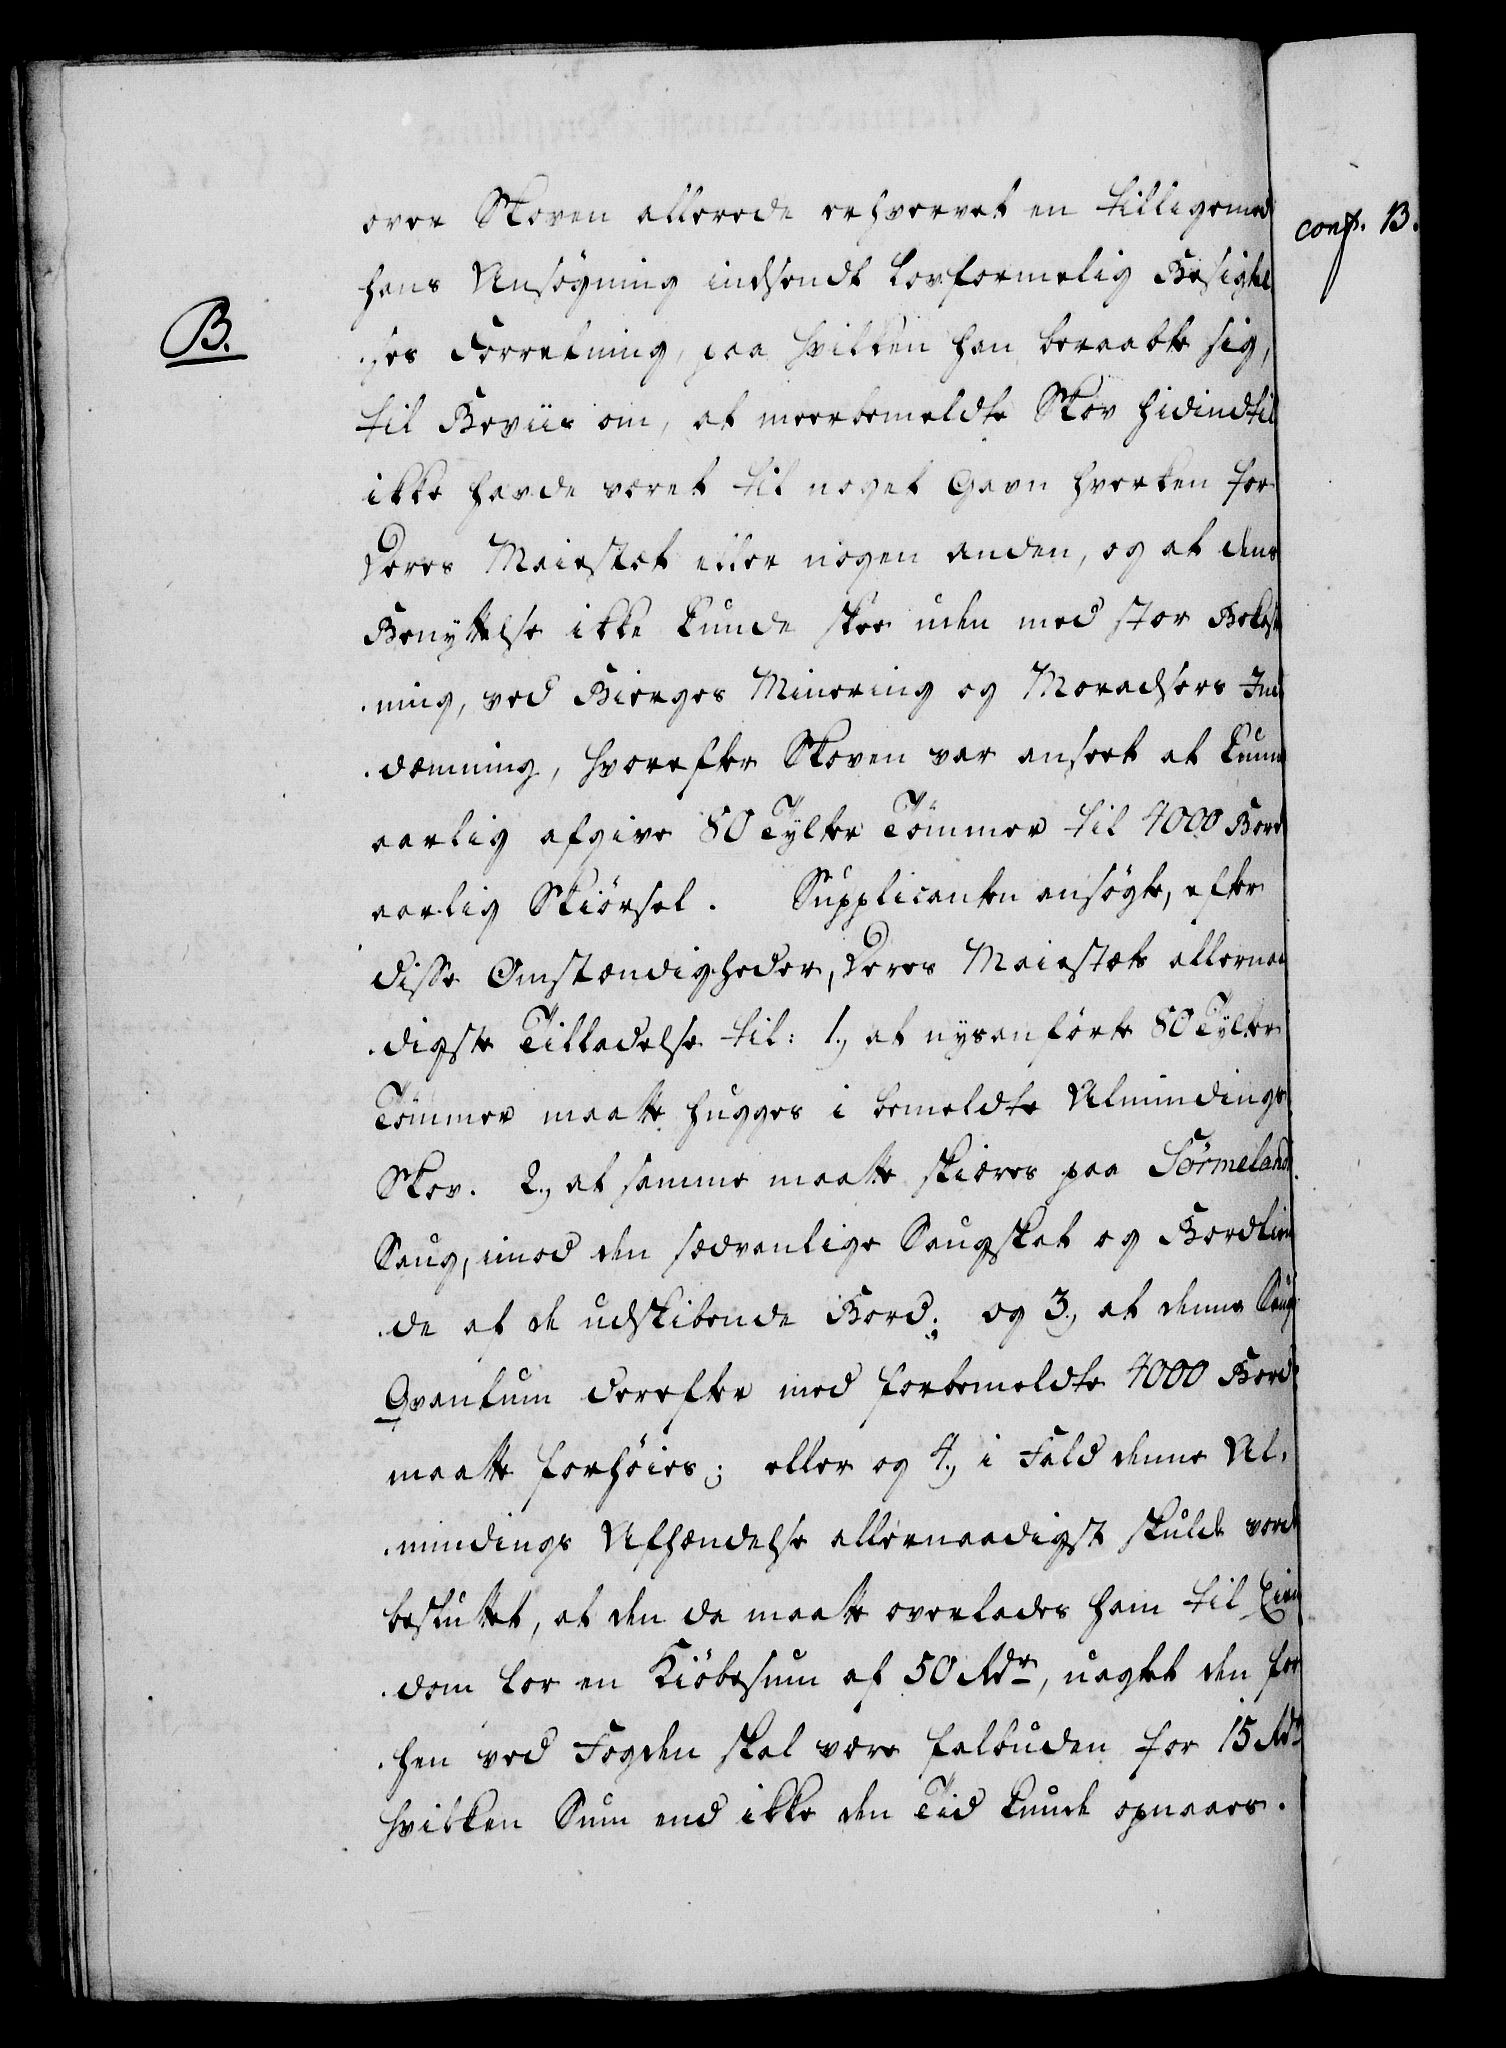 over Skoven allerede erhvervet en tilligemed
conf. B.
hans Ansögning indsendt lovformelig Besigtel
B.
ses Forretning, paa hvilken han beraabte sig,
til Beviis om, at meerbemeldte Skov hidindtil
ikke havde været til noget Gavn hverken for
Deres Maiestæt eller nogen anden, og at dens
Benyttelse ikke kunde skee uden med stor Bekost
ning, ved Bierges Minering og Moradsers Ind
dæmning, hvorefter Skoven var anseet at kunne
aarlig afgive 80 Tylter Tömmer til 4000 Bord
aarlig Skiörsel. Supplicanten ansögte, efter
disse Omstændigheder, Deres Maiestæts allernaa
digste Tilladelse til: 1., at nysanförte 80 Tylter
Tömmer maatte hugges i bemeldte Almindings
Skov. 2., at samme maatte skiæres paa Sörmelands
Saug, imod den sædvanlige Saugskat og Bordtien
de af de udskibende Bord; og 3., at denne Saug
Qvantum derefter med forbemeldte 4000 Bord
maatte forhöies; eller og 4., i Fald denne Al-
mindings Afhændelse allernaadigst skulde vorde
besluttet, at den da maatte overlades ham til Eien
dom for en Kiöbesum af 50 Rdr, uagtet den for
hen ved Fogden skal være falbuden for 15 Rdr
hvilken Sum end ikke den Tid kunde opnaaes.